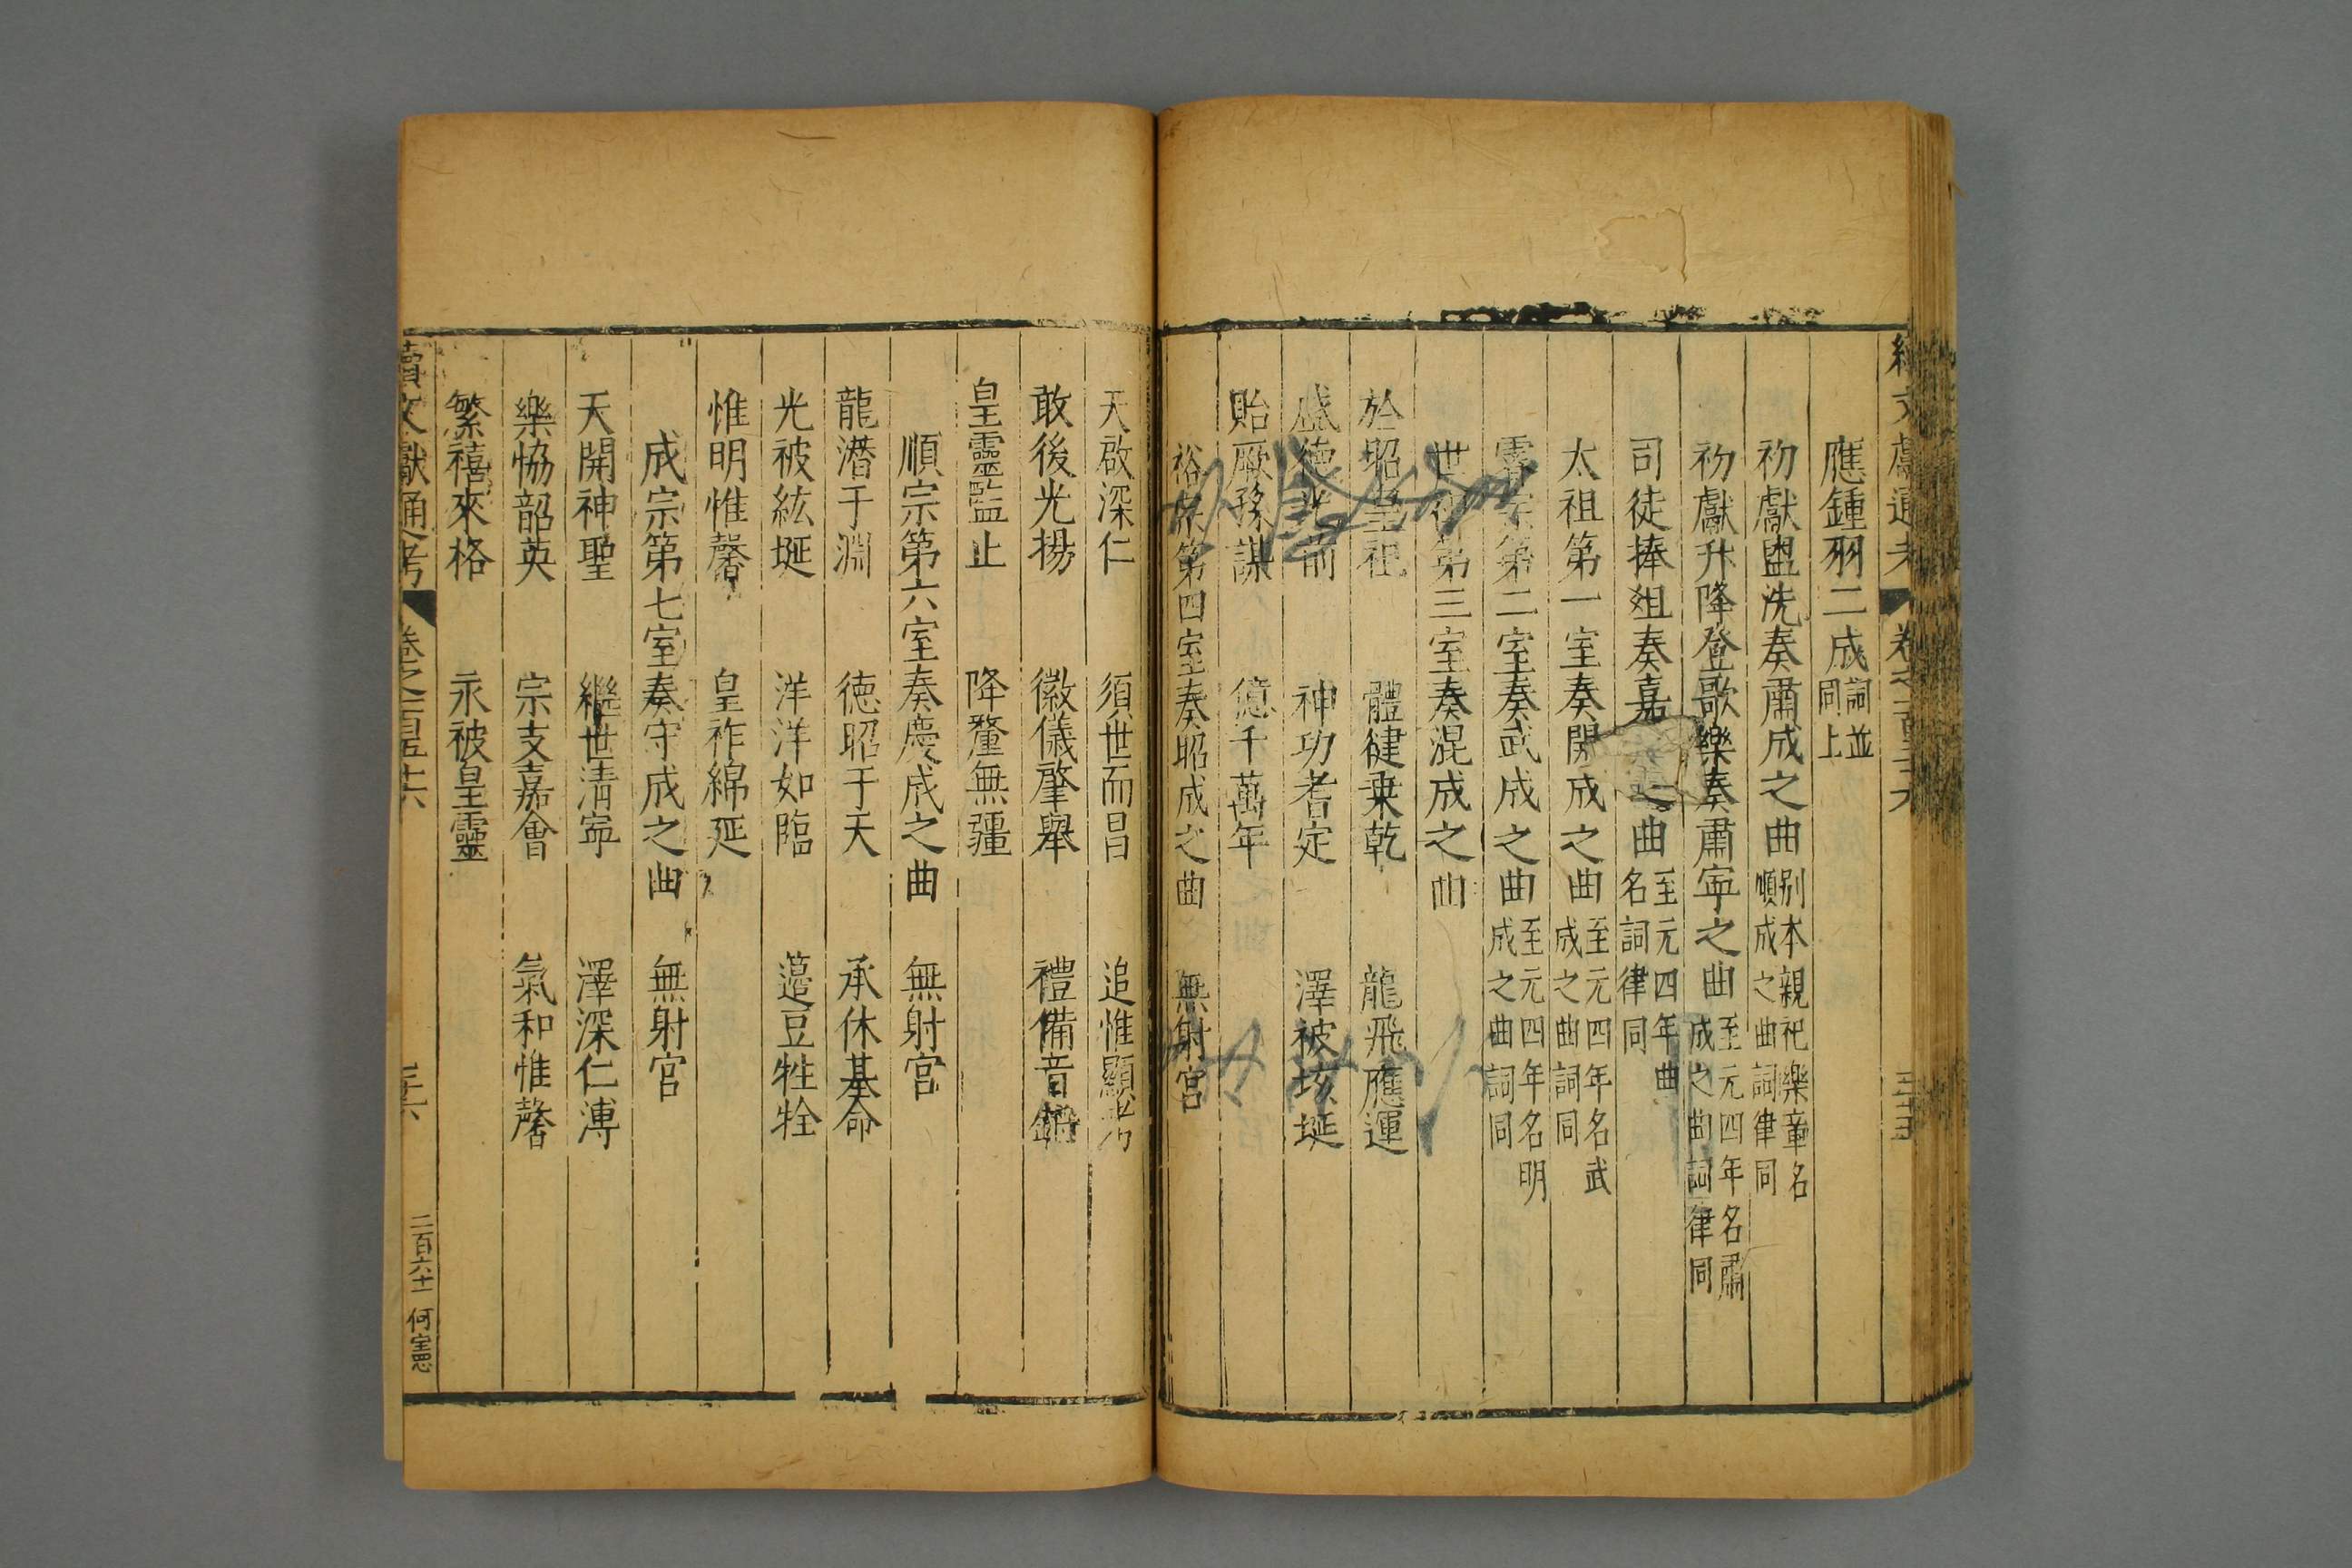 應鍾羽二成詞並同上
初獻盥洗奏肅成之曲别本親祀樂章名順成之曲詞律同
初獻升降登歌樂奏肅寜之曲至元四年名肅成之曲詞律同
司徒捧俎奏嘉之曲至元四年曲名詞律同
太祖第一室奏開成之曲至元四年名武成之曲詞同
睿宗第二室奏武成之曲至元四年名明成之曲詞同
世祖第三室奏混成之曲
於昭皇祖 體健乗乾 龍飛應運
盛德光前 神功耆定 澤被垓埏
貽厥孫謀 億千萬年
裕宗第四室奏昭成之曲 無射宫
天啟深仁 須世而昌 追惟顯考
敢後光揚 徽儀肇舉 禮備音鏘
皇靈監止 降釐無疆
順宗第六室奏慶成之曲 無射宫
龍潜于淵 徳昭于天 承休基命
光被紘埏 洋洋如臨 籩豆牲牷
惟明惟馨 皇祚綿延
成宗第七室奏守成之曲 無射宫
天開神聖 繼世清寜 澤深仁溥
樂恊韶英 宗支嘉會 氣和惟馨
繁禧來格 永被皇靈
續文獻通考 卷之一百五十六 三十六 二百六十二 何宝悤